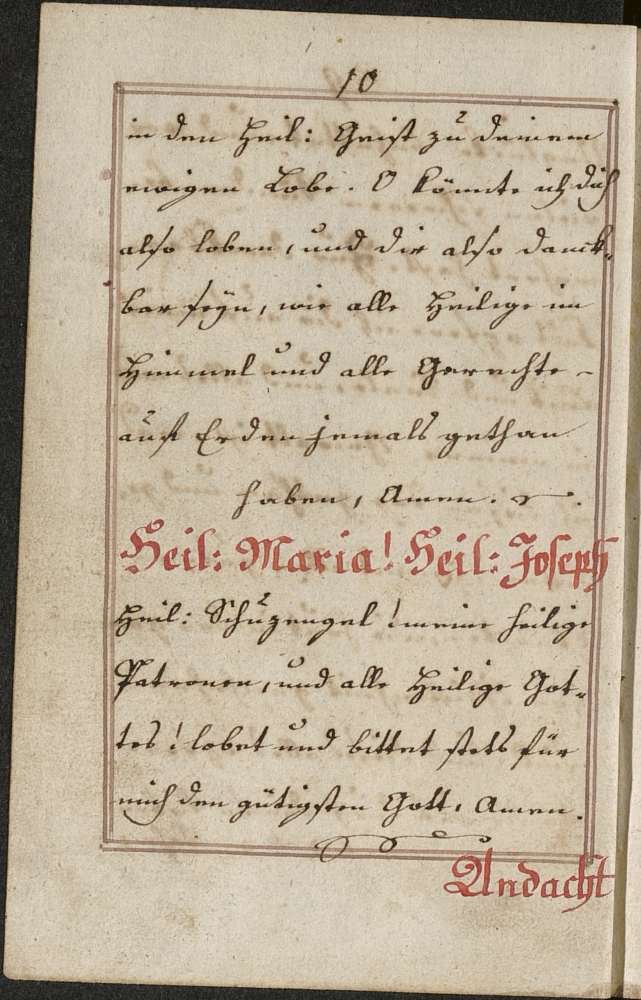 10
in den Heil: Geist zu deinem
ewigen Lobe. O könnte ich dich
also loben, und dir also danck-
bar seyn, wie alle Heilige im
Himmel und alle Gerechte -
auf Erden jemals gethan
haben, Amen.
Heil: Maria! Heil: Joseph
Heil: Schuzengel! meine heilige
Patronen, und alle Heilige Got-
tes! lobet und bittet stets für
mich den gütigsten Gott, Amen.
Andacht